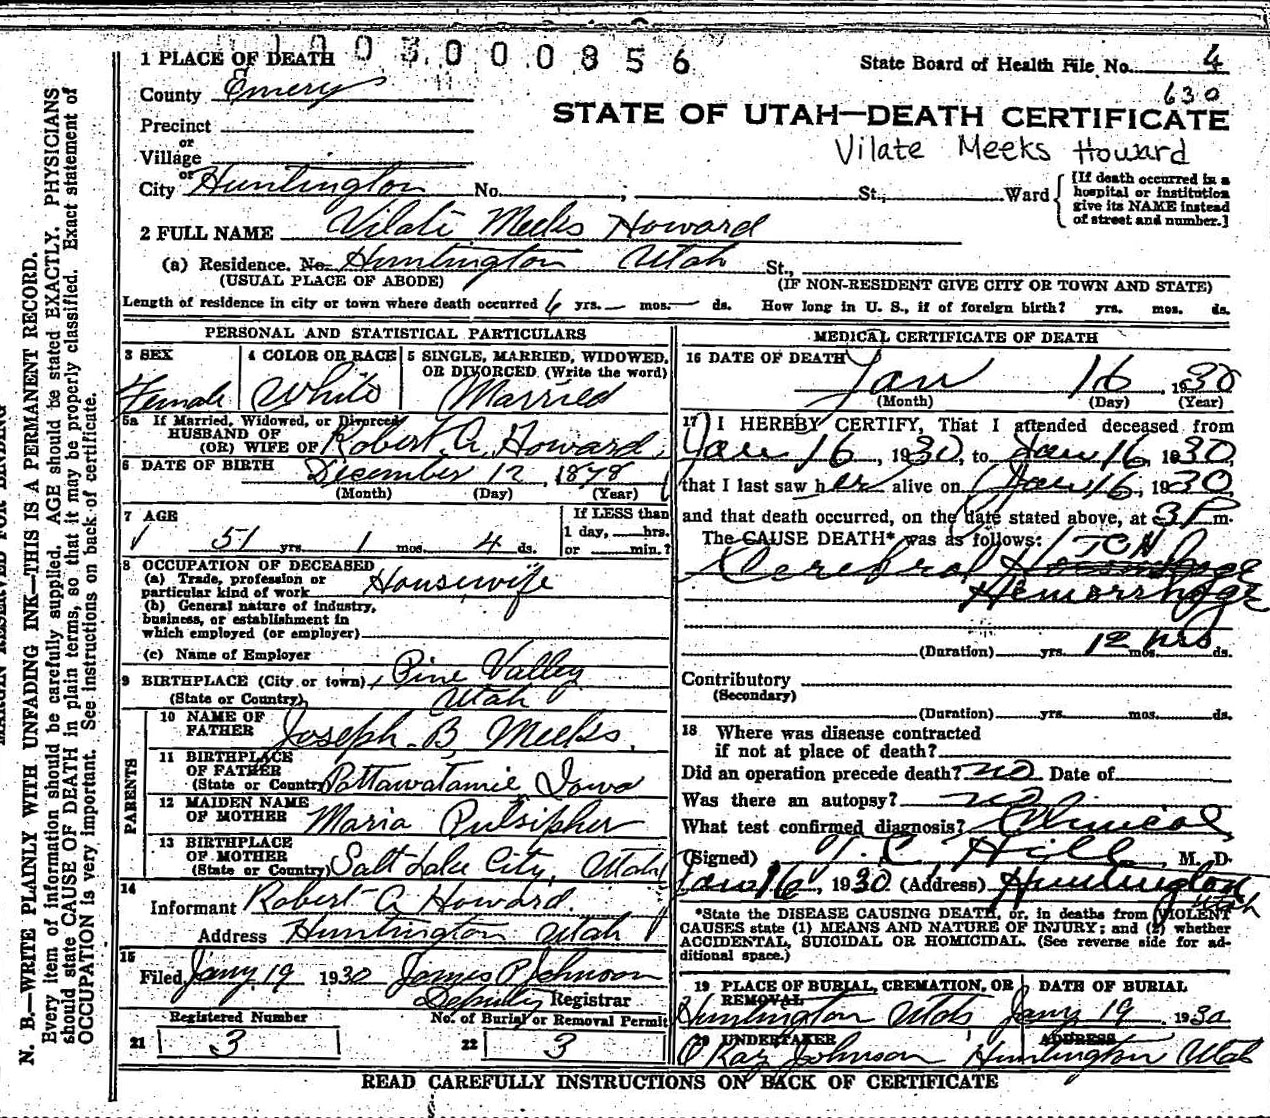 1003000856
1 PLACE OF DEATH
State Board of Health File No. 4
County Emery
630
STATE OF UTAH—DEATH CERTIFICATE
Precinct
or
Village
Vilate Meeks Howard
or
City Huntington No. ; St., Ward
[If death occurred in a
hospital or institution
give its NAME instead
of street and number.]
2 FULL NAME Vilate Meeks Howard
(a) Residence. No. Huntington Utah St.,
(USUAL PLACE OF ABODE) (IF NON-RESIDENT GIVE CITY OR TOWN AND STATE)
Length of residence in city or town where death occurred 6 yrs. — mos. — ds. How long in U. S., if of foreign birth? yrs. mos. ds.
PERSONAL AND STATISTICAL PARTICULARS
3 SEX
Female
4 COLOR OR RACE
White
5 SINGLE, MARRIED, WIDOWED,
OR DIVORCED (Write the word)
Married
5a If Married, Widowed, or Divorced
HUSBAND OF
(OR) WIFE OF Robert A. Howard
6 DATE OF BIRTH December 12, 1878
(Month) (Day) (Year)
7 AGE
51 yrs. 1 mos. 4 ds.
If LESS than
1 day, hrs.
or min.?
8 OCCUPATION OF DECEASED
(a) Trade, profession or
particular kind of work Housewife
(b) General nature of industry,
business, or establishment in
which employed (or employer)
(c) Name of Employer
9 BIRTHPLACE (City or town) Pine Valley
(State or Country) Utah
PARENTS
10 NAME OF
FATHER Joseph B. Meeks.
11 BIRTHPLACE
OF FATHER
(State or Country) Pottawatamie, Iowa
12 MAIDEN NAME
OF MOTHER Maria Pulsipher
13 BIRTHPLACE
OF MOTHER
(State or Country) Salt Lake City, Utah
14
Informant Robert A Howard.
Address Huntington Utah
15
Filed Jany 19 1930 James P Johnson
Deputy Registrar
Registered Number
21 3
No. of Burial or Removal Permit
22 3
MEDICAL CERTIFICATE OF DEATH
16 DATE OF DEATH
Jan 16, 1930
(Month) (Day) (Year)
17 I HEREBY CERTIFY, That I attended deceased from
Jan 16, 1930, to Jan 16, 1930,
that I last saw her alive on Jan 16, 1930
and that death occurred, on the date stated above, at 3P m.
The CAUSE DEATH* was as follows:
TCH
Cerebral
Hemorrhage
12 hrs
(Duration) yrs. mos. ds.
Contributory
(Secondary)
(Duration) yrs. mos. ds.
18 Where was disease contracted
if not at place of death?
Did an operation precede death? no Date of
Was there an autopsy? no
What test confirmed diagnosis? Clinical
(Signed) T. C. Hill, M. D.
Jan 16, 1930 (Address) Huntington
Utah
*State the DISEASE CAUSING DEATH, or, in deaths from VIOLENT
CAUSES state (1) MEANS AND NATURE OF INJURY; and (2) whether
ACCIDENTAL, SUICIDAL OR HOMICIDAL. (See reverse side for ad-
ditional space.)
19 PLACE OF BURIAL, CREMATION, OR
REMOVAL
Huntington Utah
DATE OF BURIAL
Jany 19 1930
20 UNDERTAKER
Ray Johnson
ADDRESS
Huntington Utah
READ CAREFULLY INSTRUCTIONS ON BACK OF CERTIFICATE
N. B.—WRITE PLAINLY WITH UNFADING INK—THIS IS A PERMANENT RECORD.
Every item of information should be carefully supplied. AGE should be stated EXACTLY. PHYSICIANS
should state CAUSE OF DEATH in plain terms, so that it may be properly classified. Exact statement of
OCCUPATION is very important. See instructions on back of certificate.
MARGIN RESERVED FOR BINDING